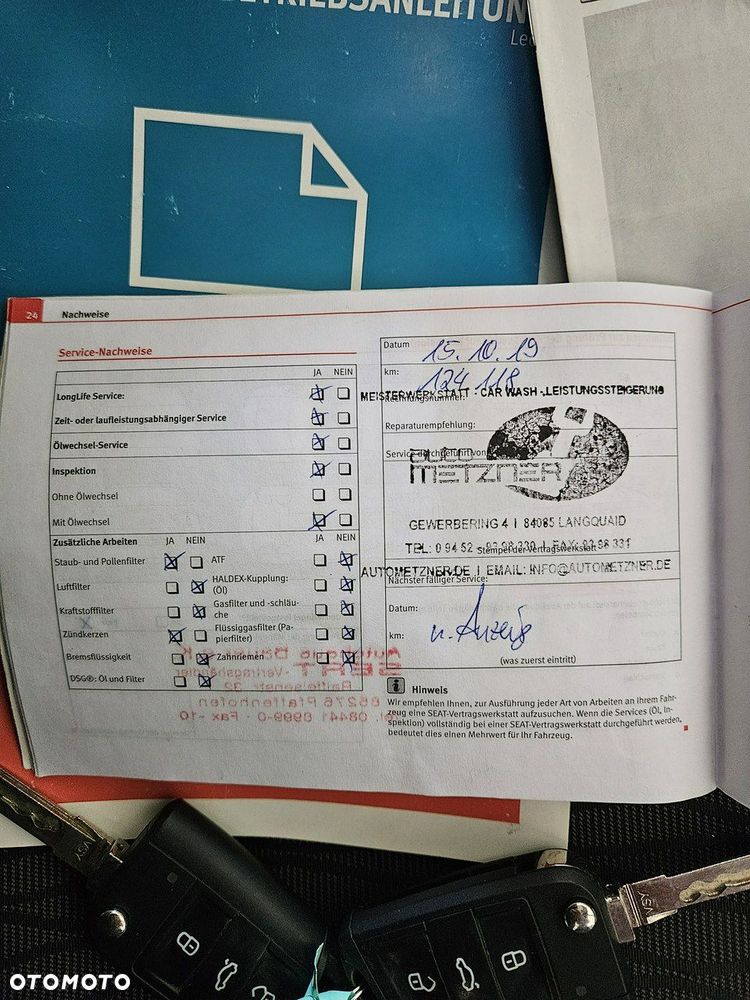 BETRIEBSANLEITUN
24 Nachweise
Service-Nachweise
JA NEIN
LongLife Service:
Zeit- oder laufleistungsabhängiger Service
Ölwechsel-Service
Inspektion
Ohne Ölwechsel
Mit Ölwechsel
Zusätzliche Arbeiten JA NEIN JA NEIN
Staub- und Pollenfilter ATF
Luftfilter HALDEX-Kupplung:
(Öl)
Kraftstofffilter Gasfilter und -schläu-
che
Zündkerzen Flüssiggasfilter (Pa-
pierfilter)
Bremsflüssigkeit Zahnriemen
DSG®: Öl und Filter
Datum 15.10.19
km: 124 118
MEISTERWERKSTATT · CAR WASH - LEISTUNGSSTEIGERUNG
Rechnungsnummer:
Reparaturempfehlung:
Service durchgeführt von
auto
METZNER
GEWERBERING 4 | 84085 LANGQUAID
Stempel der Vertragswerkstatt
AUTOMETZNER.DE | EMAIL: INFO@AUTOMETZNER.DE
Nächster fälliger Service:
Datum:
km: n. Anzeig
(was zuerst eintritt)
SEAT
-Vertragshändler
Raiffeisenstr. 32
85276 Pfaffenhofen
08441 8999-0 · Fax -10
i Hinweis
Wir empfehlen Ihnen, zur Ausführung jeder Art von Arbeiten an Ihrem Fahr-
zeug eine SEAT-Vertragswerkstatt aufzusuchen. Wenn die Services (Öl, In-
spektion) vollständig bei einer SEAT-Vertragswerkstatt durchgeführt werden,
bedeutet dies einen Mehrwert für Ihr Fahrzeug.
OTOMOTO